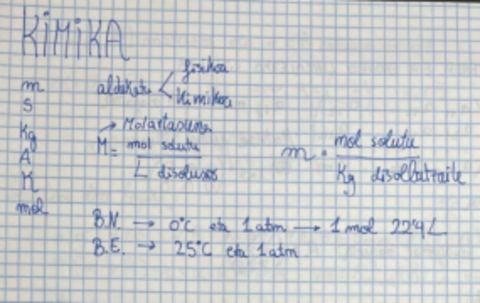 KIMIKA
m
s
Kg
A
K
mol
aldaketa < fisikoa
kimikoa
→ Molartasuna
M = mol solutu / L disoluzio
m = mol solutu / Kg disolbatzaile
B.N. → 0°C eta 1 atm → 1 mol 22'4 L
B.E. → 25°C eta 1 atm